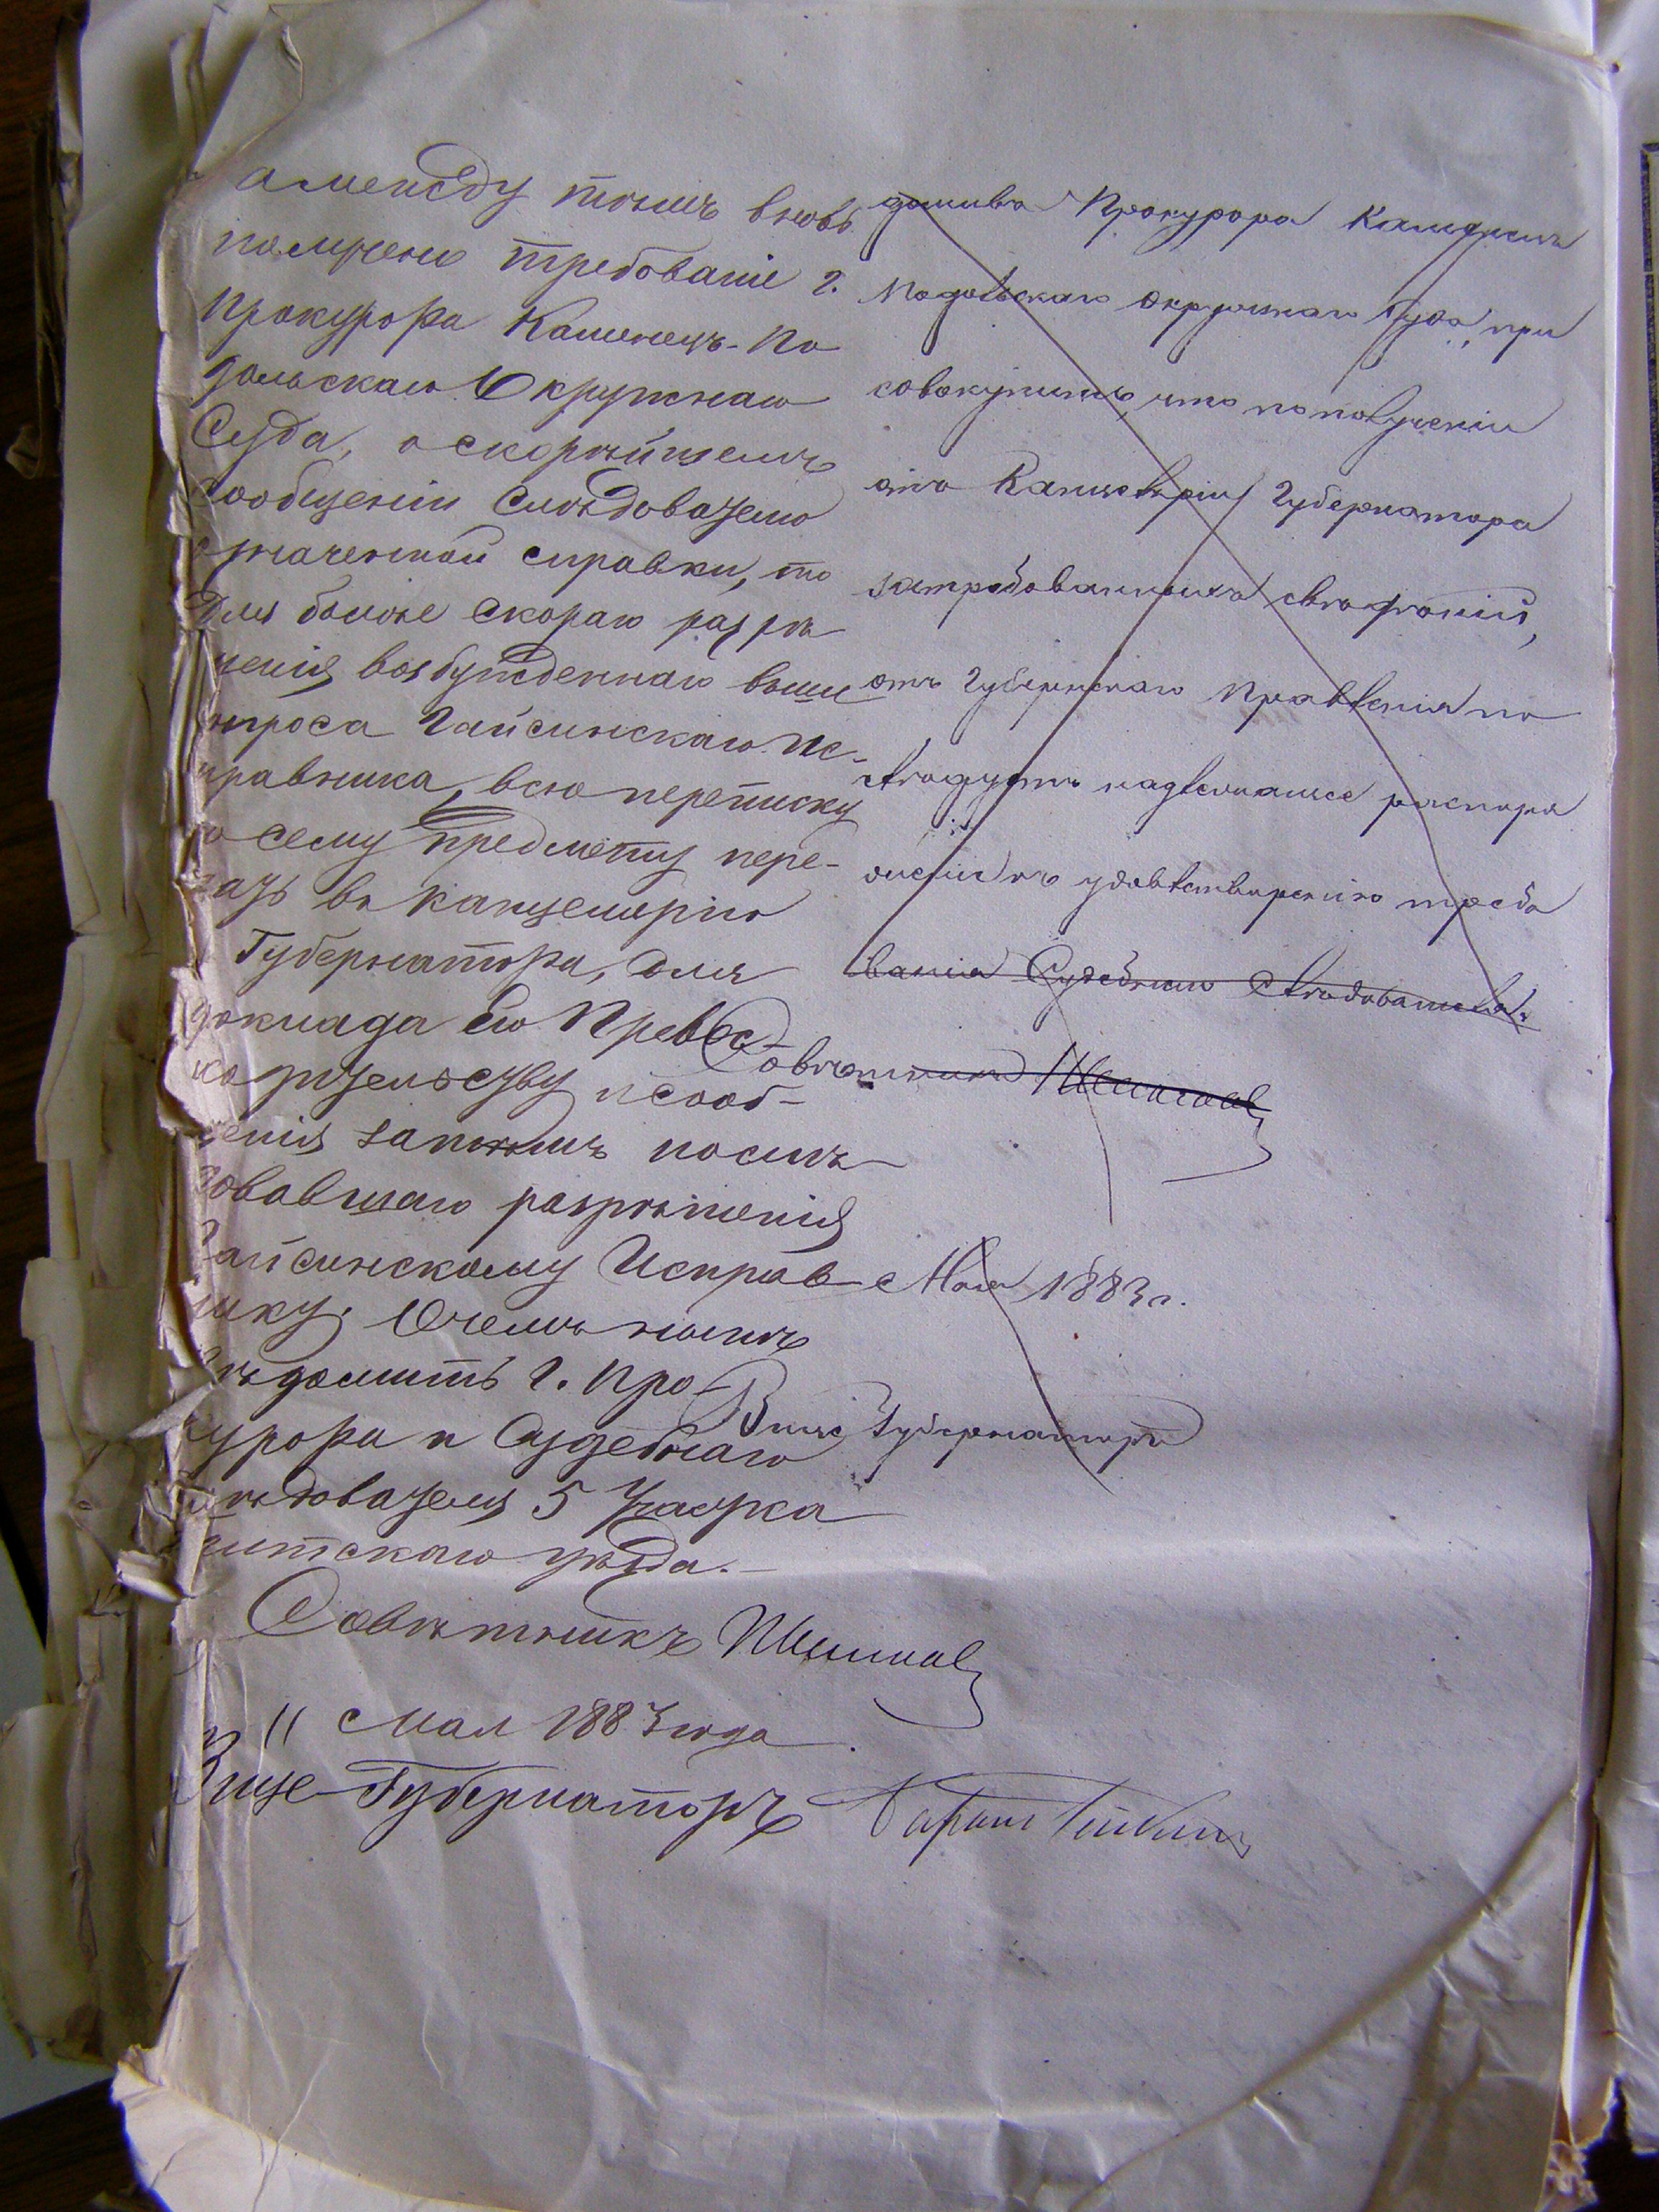 а между тѣмъ вновь
получено требованіе г.
Прокурора Каменецъ-По
дольскаго Окружнаго
Суда, о скорѣйшемъ
сообщеніи Слѣдователю
означенной справки, то
для болѣе скораго разрѣ
шенія возбужденнаго выше
вопроса Гайсинскаго Ис-
правника, всю переписку
по сему предмету пере-
дать въ канцелярію
Губернатора, для
доклада Его Превос-
ходительству и сооб-
щенія затѣмъ послѣ-
довавшаго разрѣшенія
Гайсинскому Исправ
нику; О чемъ нынѣ
увѣдомить г. Про-
курора и Судебнаго
Слѣдователя 5 Участка
уѣзда.
Совѣтникъ
11 Мая 1883 года
Вице-Губернаторъ
домивъ Прокурора Каменецъ
Подольскаго Окружнаго Суда, при
совокупить, что по полученіи
отъ Канцеляріи Губернатора
затребованныхъ свѣдѣній,
отъ Губернскаго Правленія по
слѣдуетъ надлежащее распоря
женіе къ удовлетворенію требо
ванія Судебнаго Слѣдователя.
Совѣтникъ
Мая 1883 г.
Вице Губернаторъ